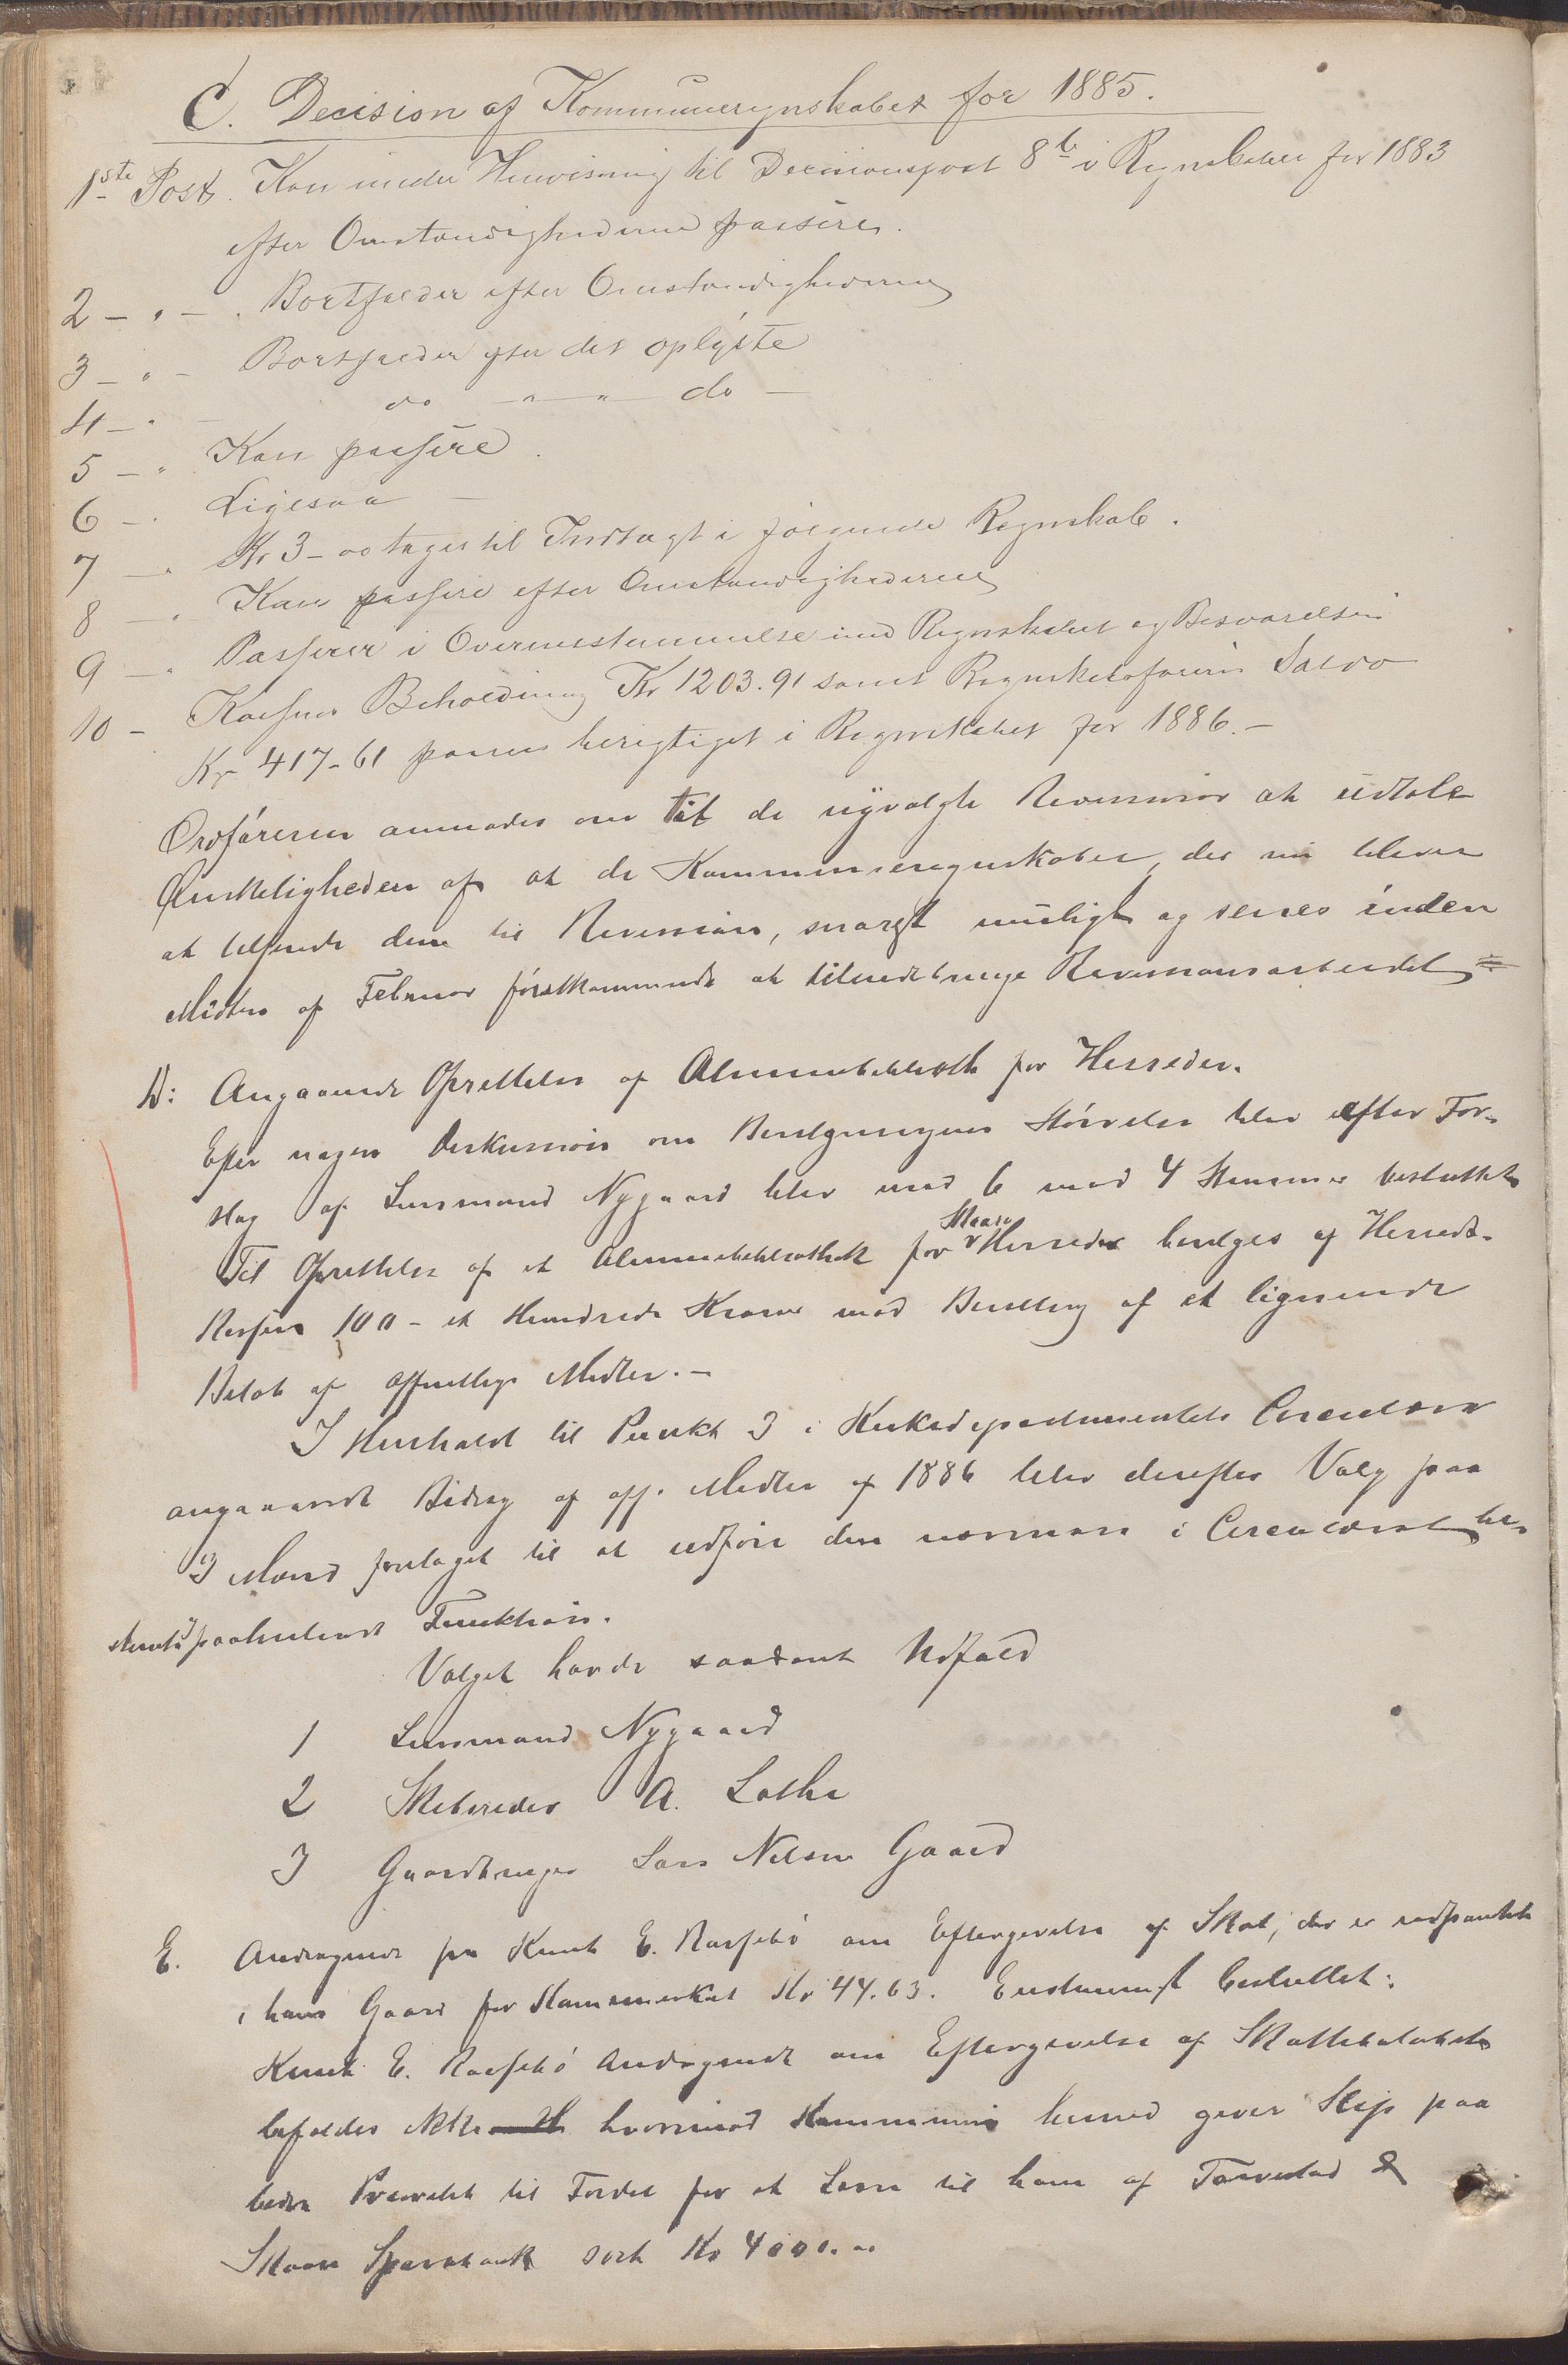 C. Decision af Kommuneregnskabet for 1885.
1ste Post. Kan under Henvisning til Decisionspost 8b i Regnskabet for 1883
efter Omstændighederne passere.
2 - " - . Bortfalder efter Omstændighederne
3 - " - Bortfalder efter det oplyste
4 - " do - " " - do -
5 - " Kan passere.
6 - " Ligesaa -
7 - " Kr 3-00 tages til Indtægt i følgende Regnskab.
8 - " Kan passere efter Omstændighederne
9 - " Passerer i Overensstemmelse med Regnskabet og Besvarelsen
10 - Kassens Beholdning Kr 1203.91 samt Regnskabsførerens Saldo
Kr 417-61 paasees berigtiget i Regnskabet for 1886.-
Ordføreren anmodes om til de nyvalgte Revisorer at udtale
Ønskeligheden af at de Kommuneregnskaber, der nu bliver
at tilsende dem til Revision, snarest muligt og senest inden
Midten af Februar førstkommende at tilendebringe Revisionsarbeidet
D: Angaaende Oprettelse af Almuebibliothek for Herredet.
Efter nogen Diskussion om Bevilgningens Størrelse blev efter For-
slag af Lensmand Nygaard blev med 6 mod 4 Stemmer besluttet
Til Oprettelse af et Almuebibliothek for Skaare Herred bevilges af Herreds-
kassen 100 - et Hundrede Kroner mod Bevilling af et lignende
Beløb af offentlige Midler.-
I Henhold til Punkt 3 i Kirkedepartementets Circulære
angaaende Bidrag af off. Midler af 1886 blev derefter Valg paa
3 Mænd foretaget til at udføre den nærmere i Circulæret be-
stemte paahvilende Funktion.
Valget havde saadant Udfald
1 Lensmand Nygaard
2 Skibsreder A. Lothe
3 Gaardbruger Lars Nilsen Gaard
E. Andragende fra Knut E. Rossebø om Eftergivelse af Skat, der er udpantet
i hans Gaard for Kommunekas. Kr 44.63. Enstemmigt besluttet:
Knut E. Rossebø Andragende om Eftergivelse af Skattebeløbet
befaldes ikke hvorimod Kommunen herved giver Slip paa
bedre Prioritet til Fordel for et Laan til ham af Torvestad &
Skaare Sparebank stort Kr 4000.00